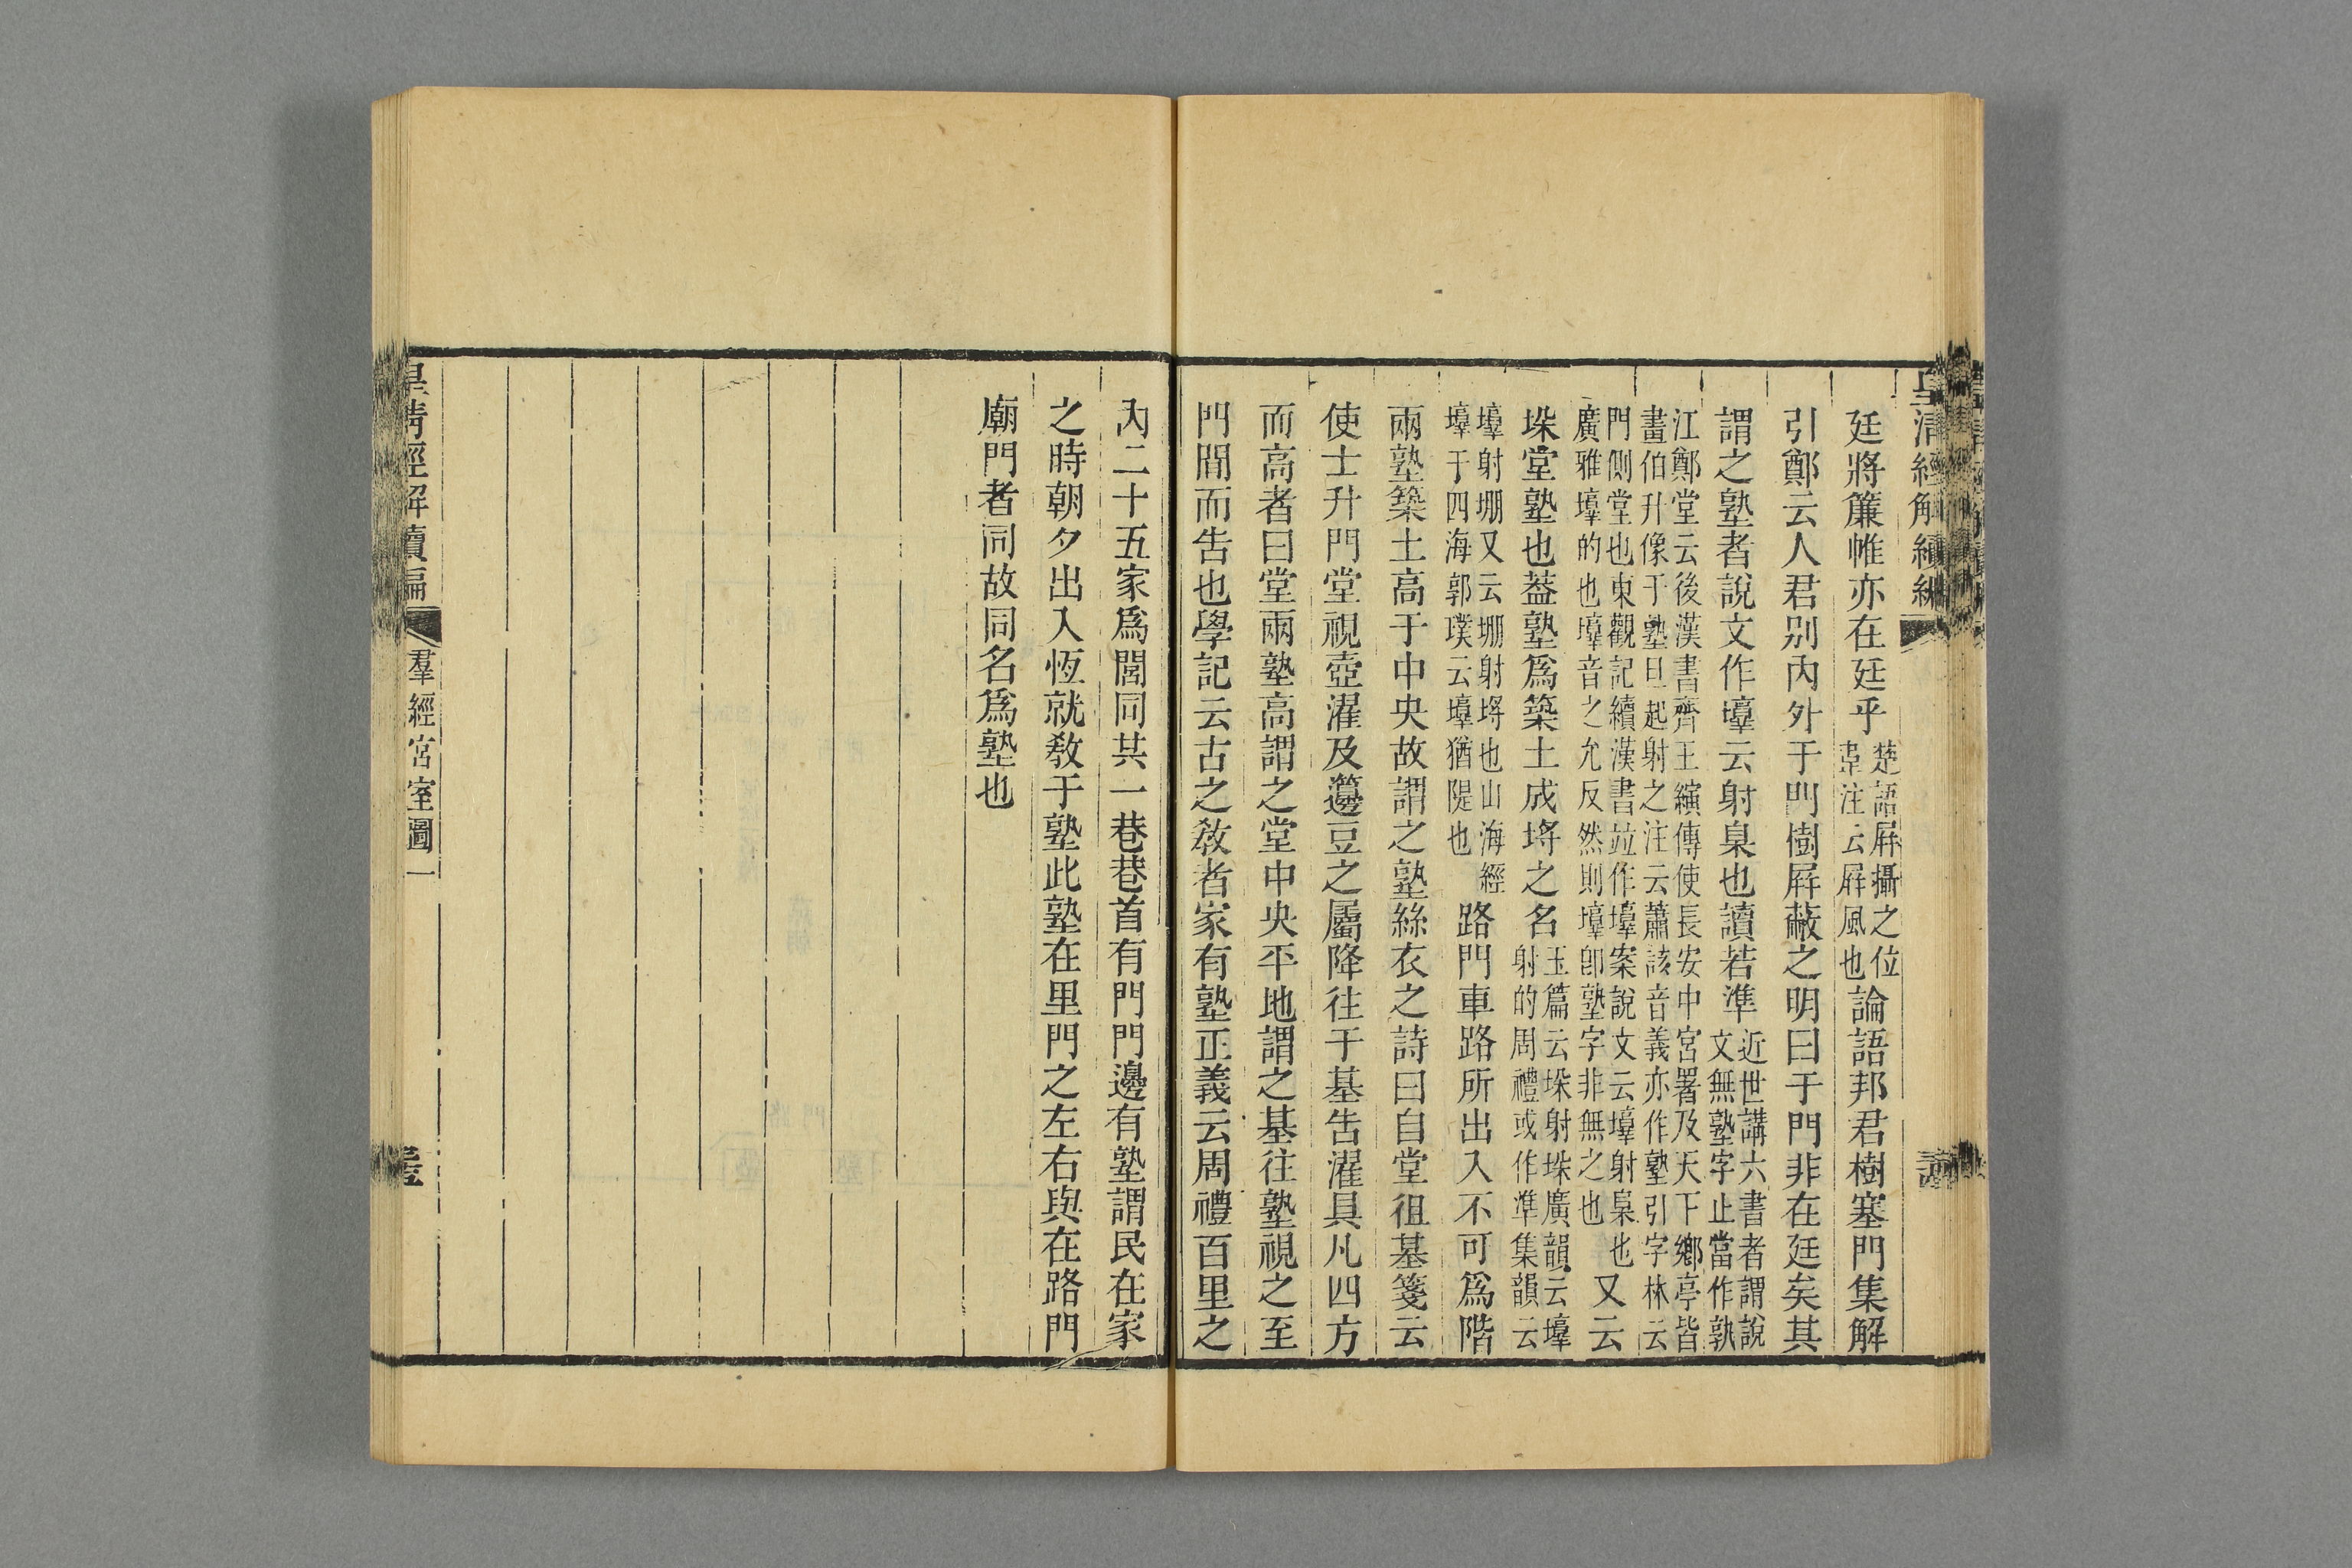 皇清經解續編
廷將簾帷亦在廷乎楚語屏攝之位韋注云屏風也論語邦君樹塞門集解
引鄭云人君別內外于門樹屏蔽之明曰于門非在廷矣其
謂之塾者說文作𡑞云射臬也讀若準近世講六書者謂說文無塾字止當作𡑞
江鄭堂云後漢書齊王縯傳使長安中宮署及天下鄉亭皆畫伯升像于塾旦起射之注云蕭該音義亦作塾引字林云
門側堂也東觀記續漢書竝作𡑞案說文云𡑞射臬也廣雅𡑞的也𡑞音之允反然則𡑞卽塾字非無之也又云
垛堂塾也葢塾爲築土成埒之名玉篇云垛射垛廣韻云𡑞射的周禮或作準集韻云
𡑞射堋又云堋射埒也山海經𡑞于四海郭璞云𡑞猶隄也路門車路所出入不可爲階
兩塾築土高于中央故謂之塾絲衣之詩曰自堂徂基箋云
使士升門堂視壺濯及籩豆之屬降往于基告濯具凡四方
而高者曰堂兩塾高謂之堂中央平地謂之基往塾視之至
門閒而告也學記云古之敎者家有塾正義云周禮百里之
內二十五家爲閭同共一巷巷首有門門邊有塾謂民在家
之時朝夕出入恆就敎于塾此塾在里門之左右與在路門
廟門者同故同名爲塾也
皇清經解續編
羣經宮室圖一